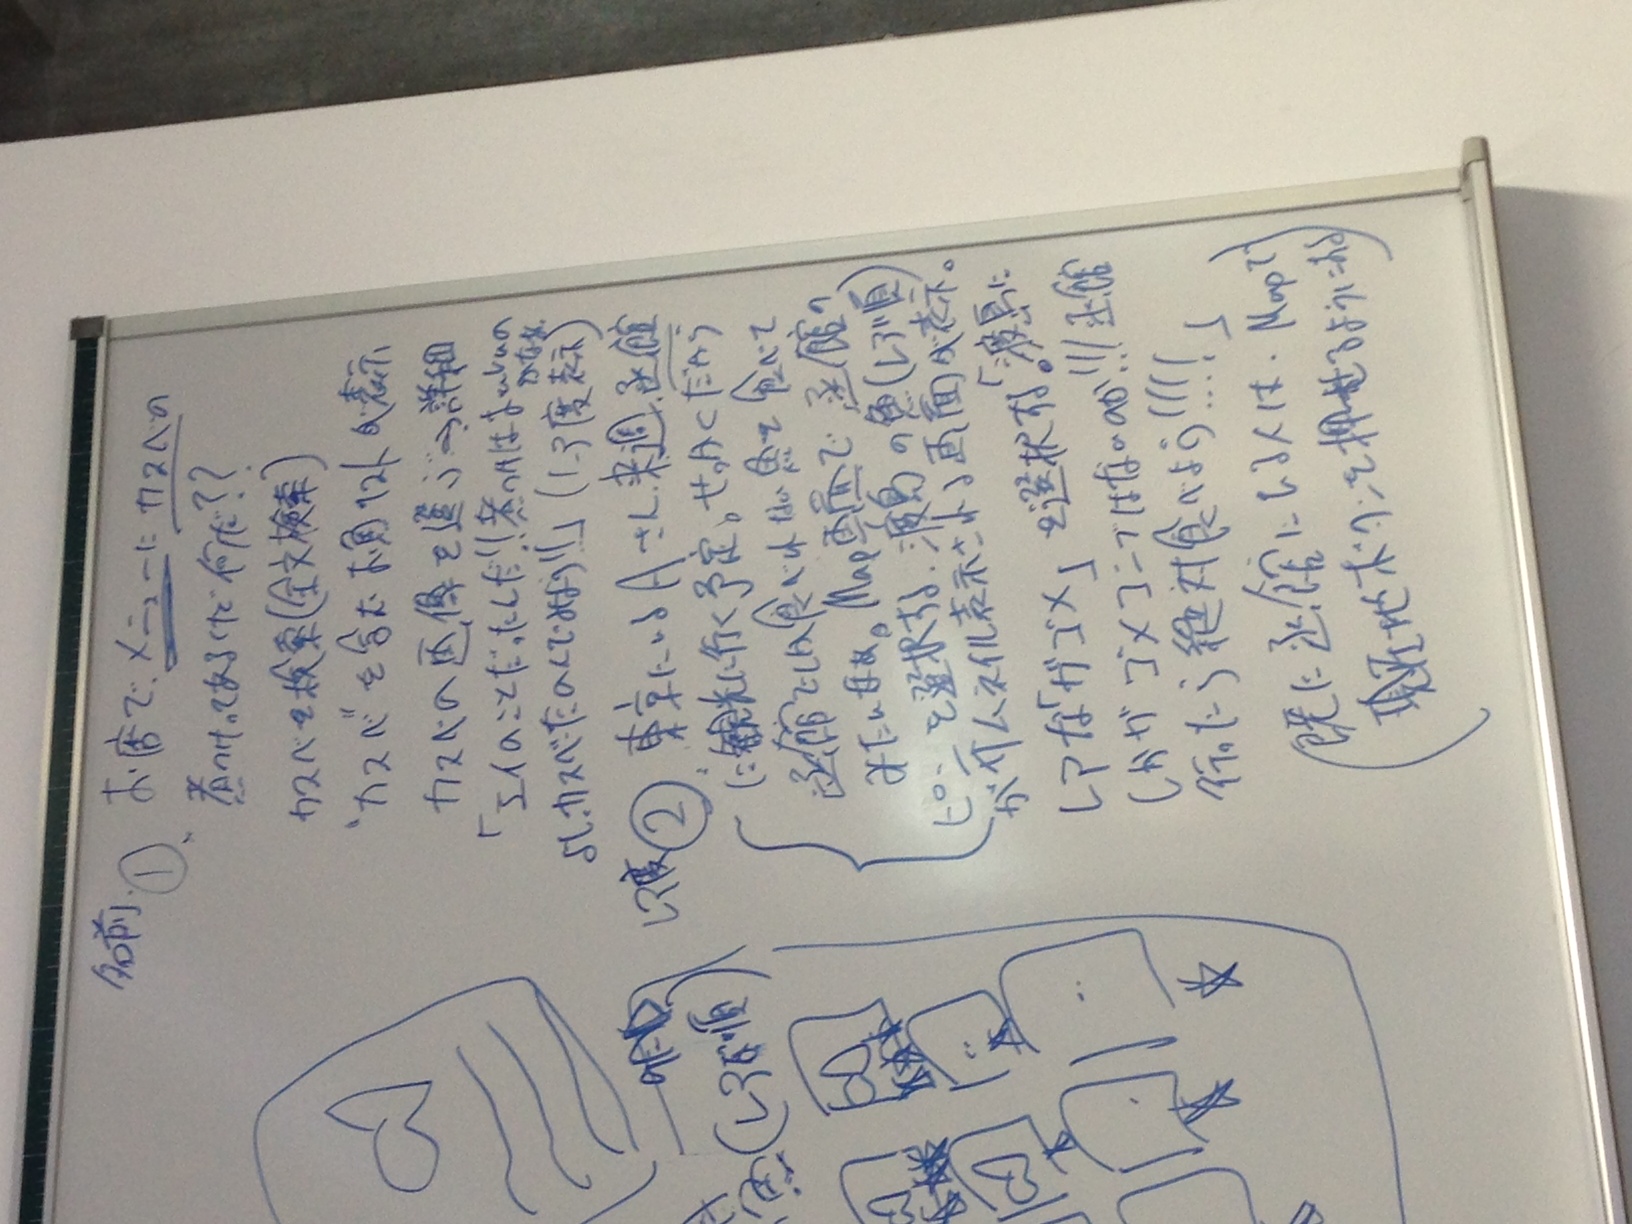 名前
① お店で、メニューにカスベの
煮つけってあるけど何だ??
カスベを検索(全文検索)
"カスベ"を含むお魚リストが表示
カスベの画像を選ぶ→詳細
「エイのことだったんだ!!煮つけはおいしいの
かなあ、
よし、カスベたのんでみよう!!」(レア度表示)
レア度
② 東京にいるAさん、来週、函館
に観光に行く予定。せっかくだから
函館でしか食べれない魚を食べて
みたいなあ。Map画面で函館の
ピンを選択する。渡島の魚(レア順)
がサムネイル表示される画面が表示。
レアな「ガゴメ」を選択する。「渡島に
しかガゴメコンブはないのか!!!函館
行ったら絶対食べよう!!!!」
(既に函館にいる人は、Mapで
現在地ボタンを押せるようにする)
魚(レアな順)